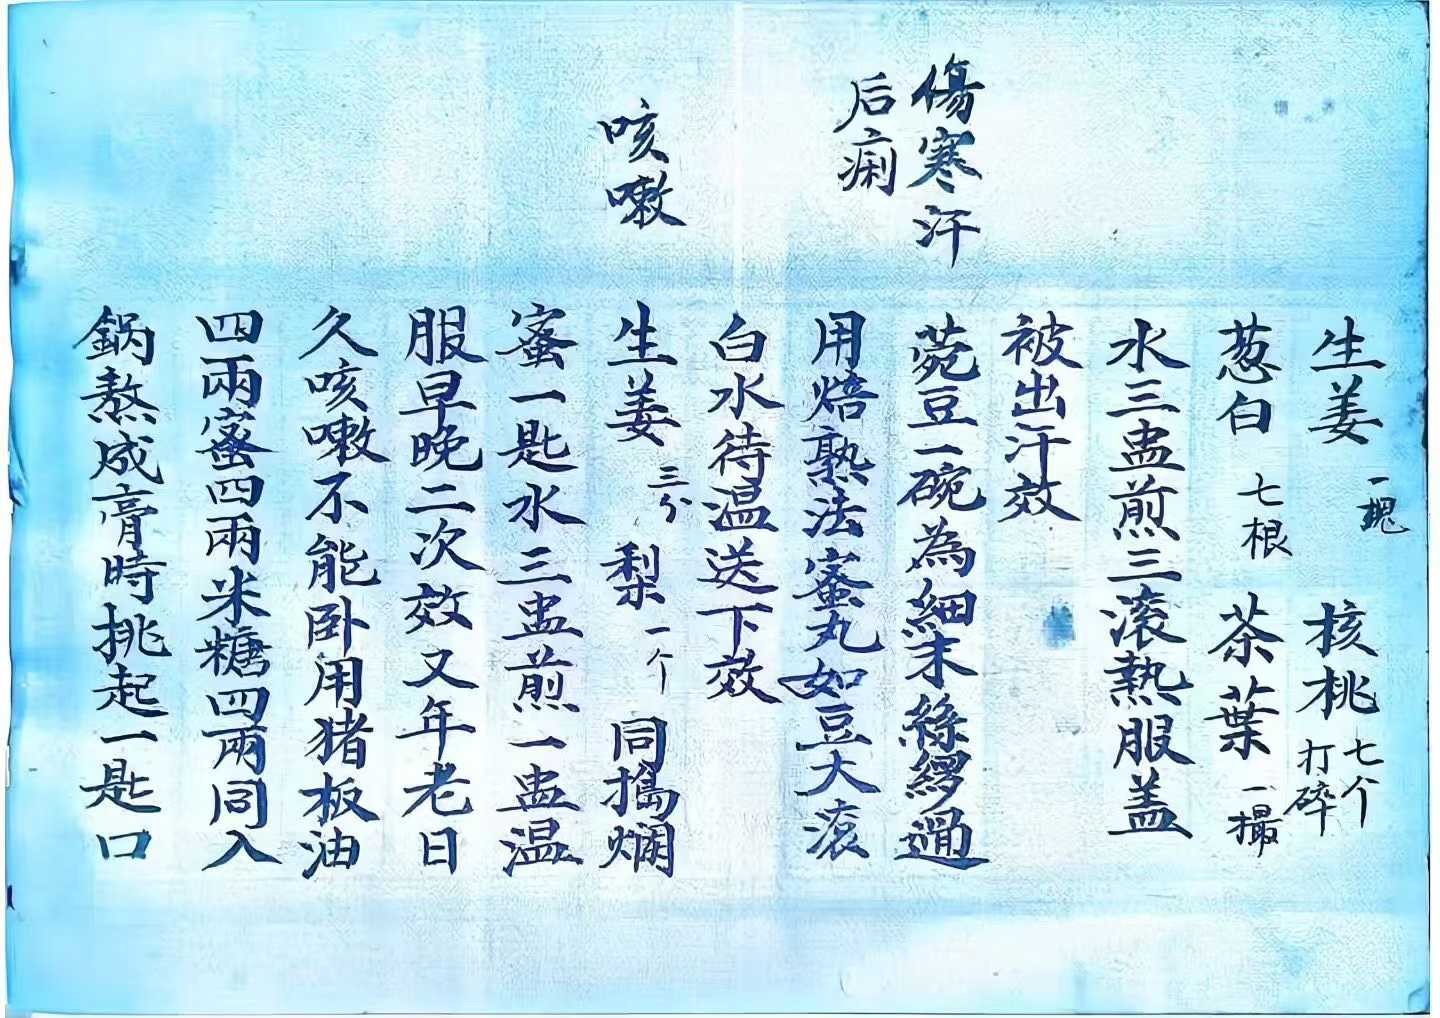 生姜 一塊 核桃 七个打碎
葱白 七根 茶葉 一撮
水三盅煎三滚熱服盖
被出汗效
傷寒汗
后痢
菀豆一碗為細末絲缪過
用焙熟法蜜丸如豆大滚
白水待温送下效
咳嗽
生姜 三分 梨 一个 同搗爛
蜜一匙水三盅煎一盅温
服早晚二次效又年老日
久咳嗽不能卧用猪板油
四兩蜜四兩米糖四兩同入
鍋熬成膏時挑起一匙口